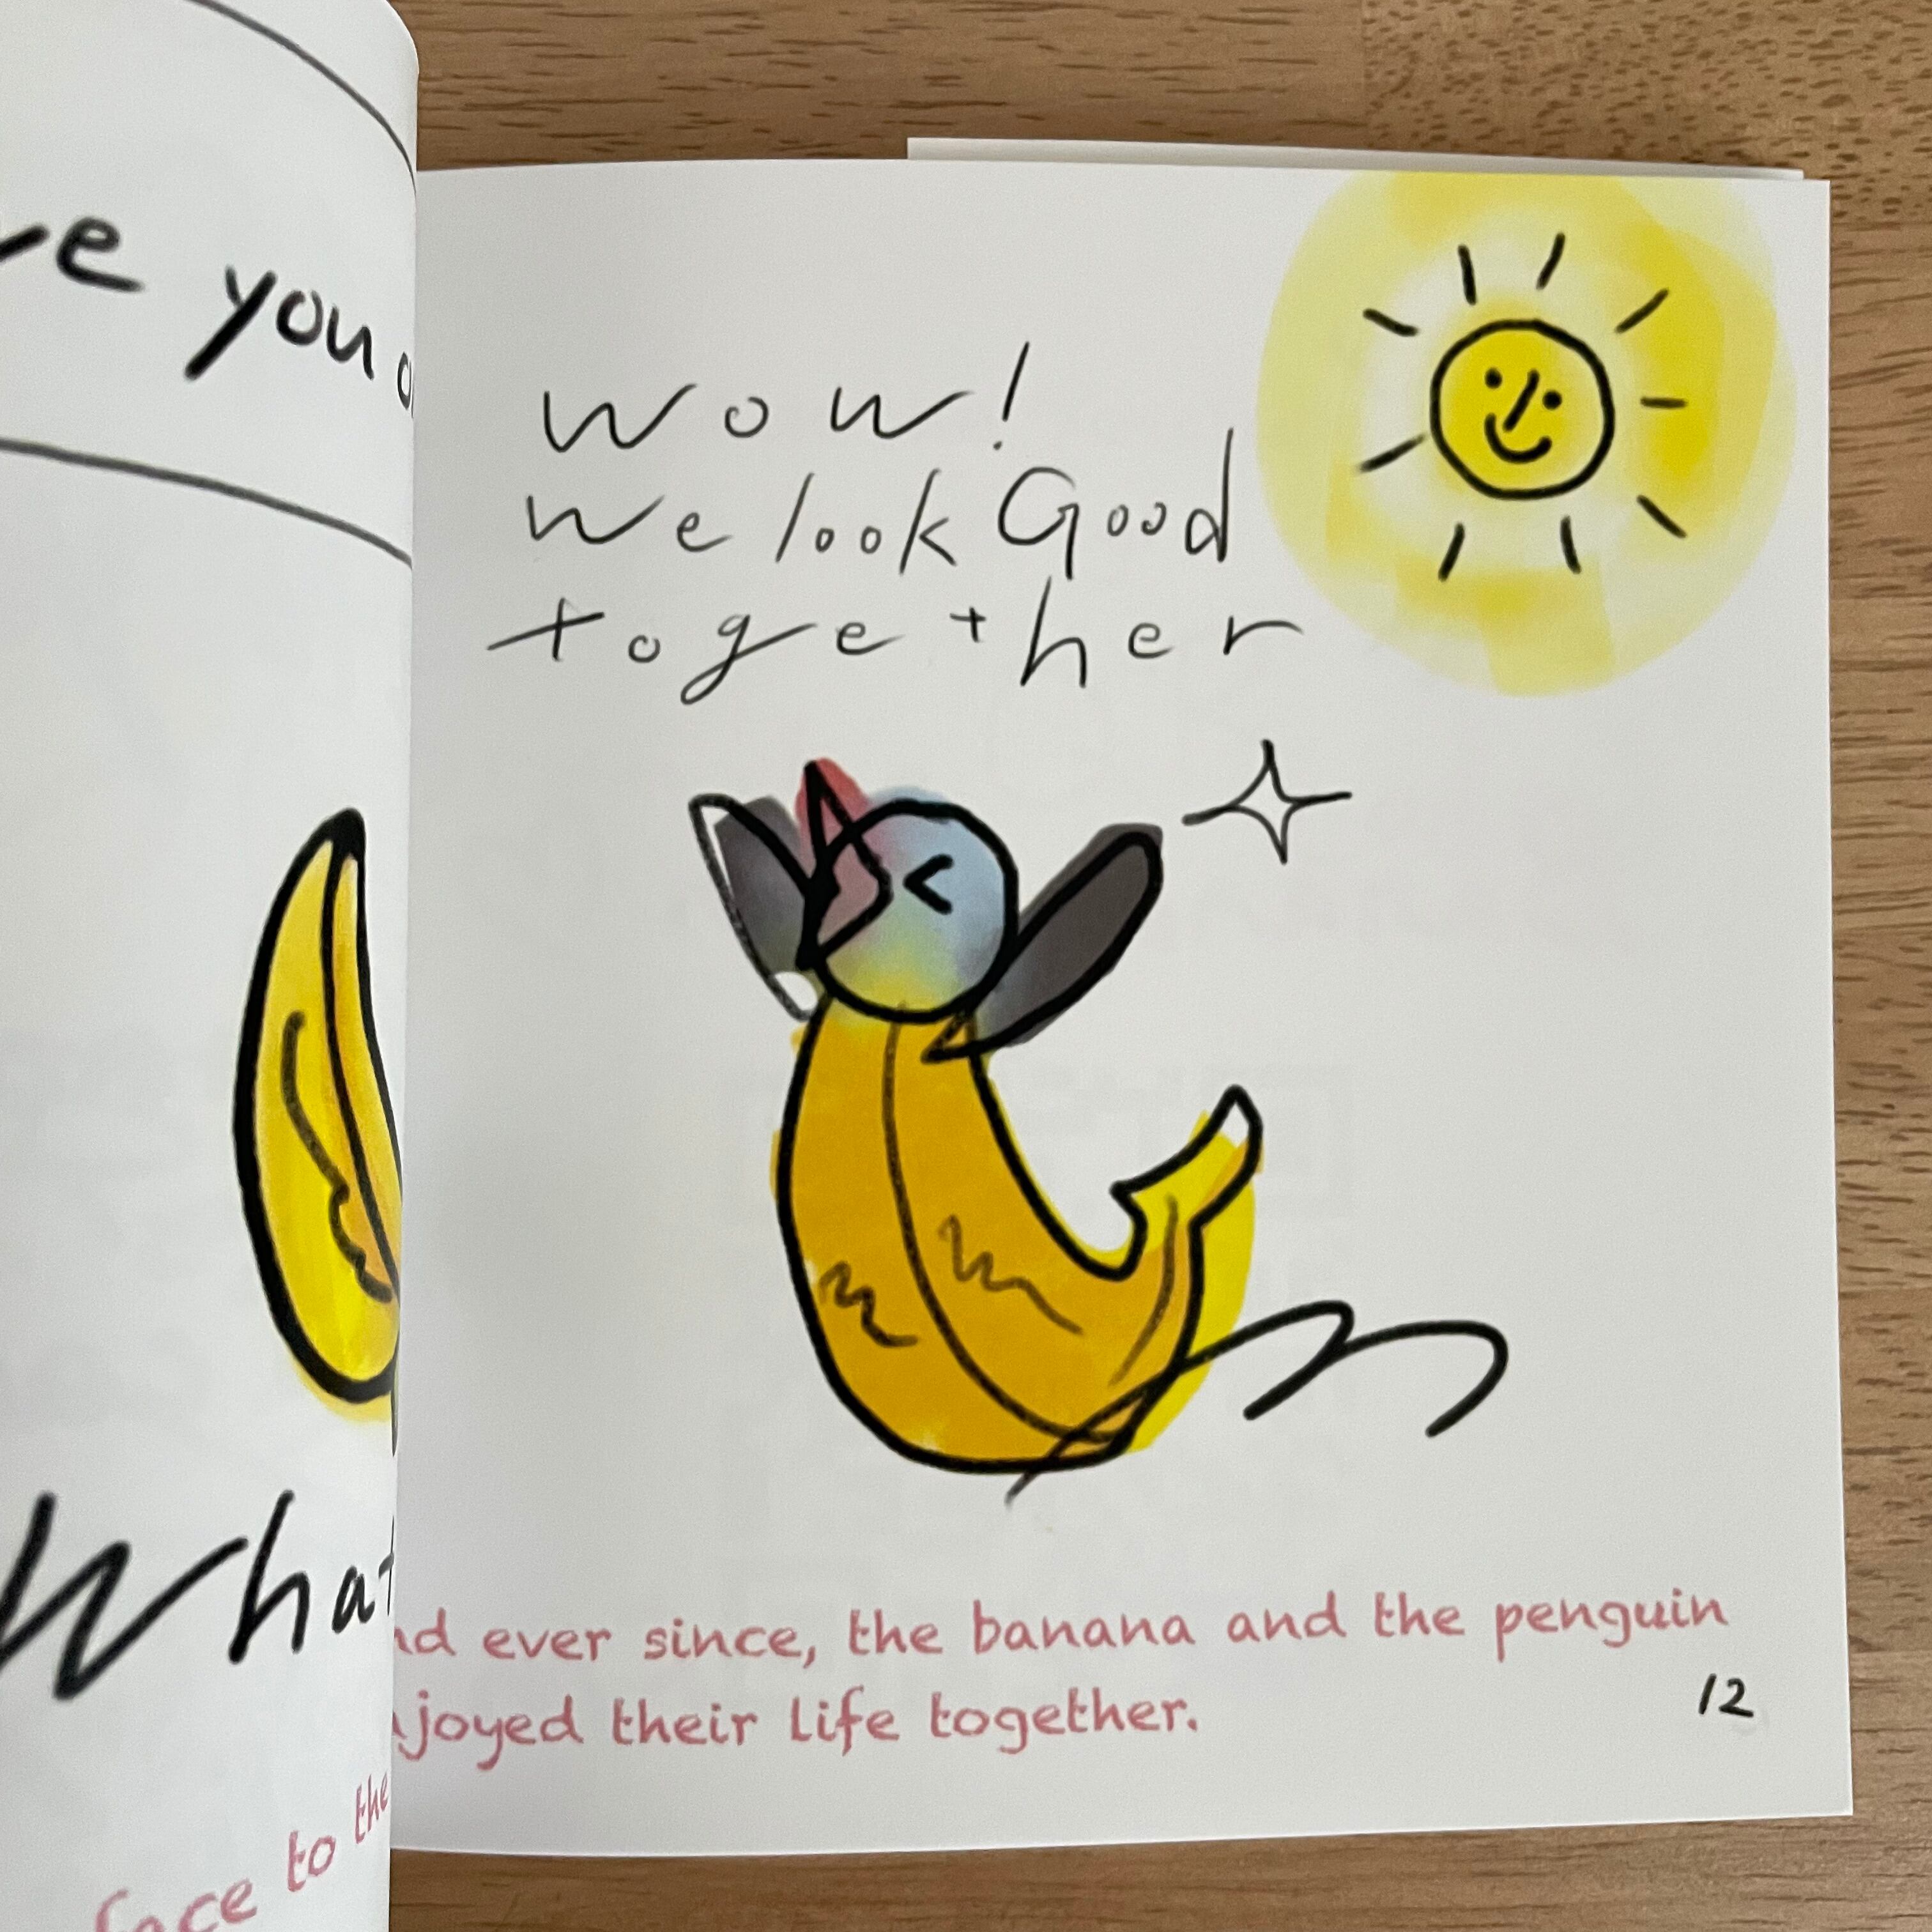 you
What
face to the
wow!
we look Good
together
ever since, the banana and the penguin
their life together.
12